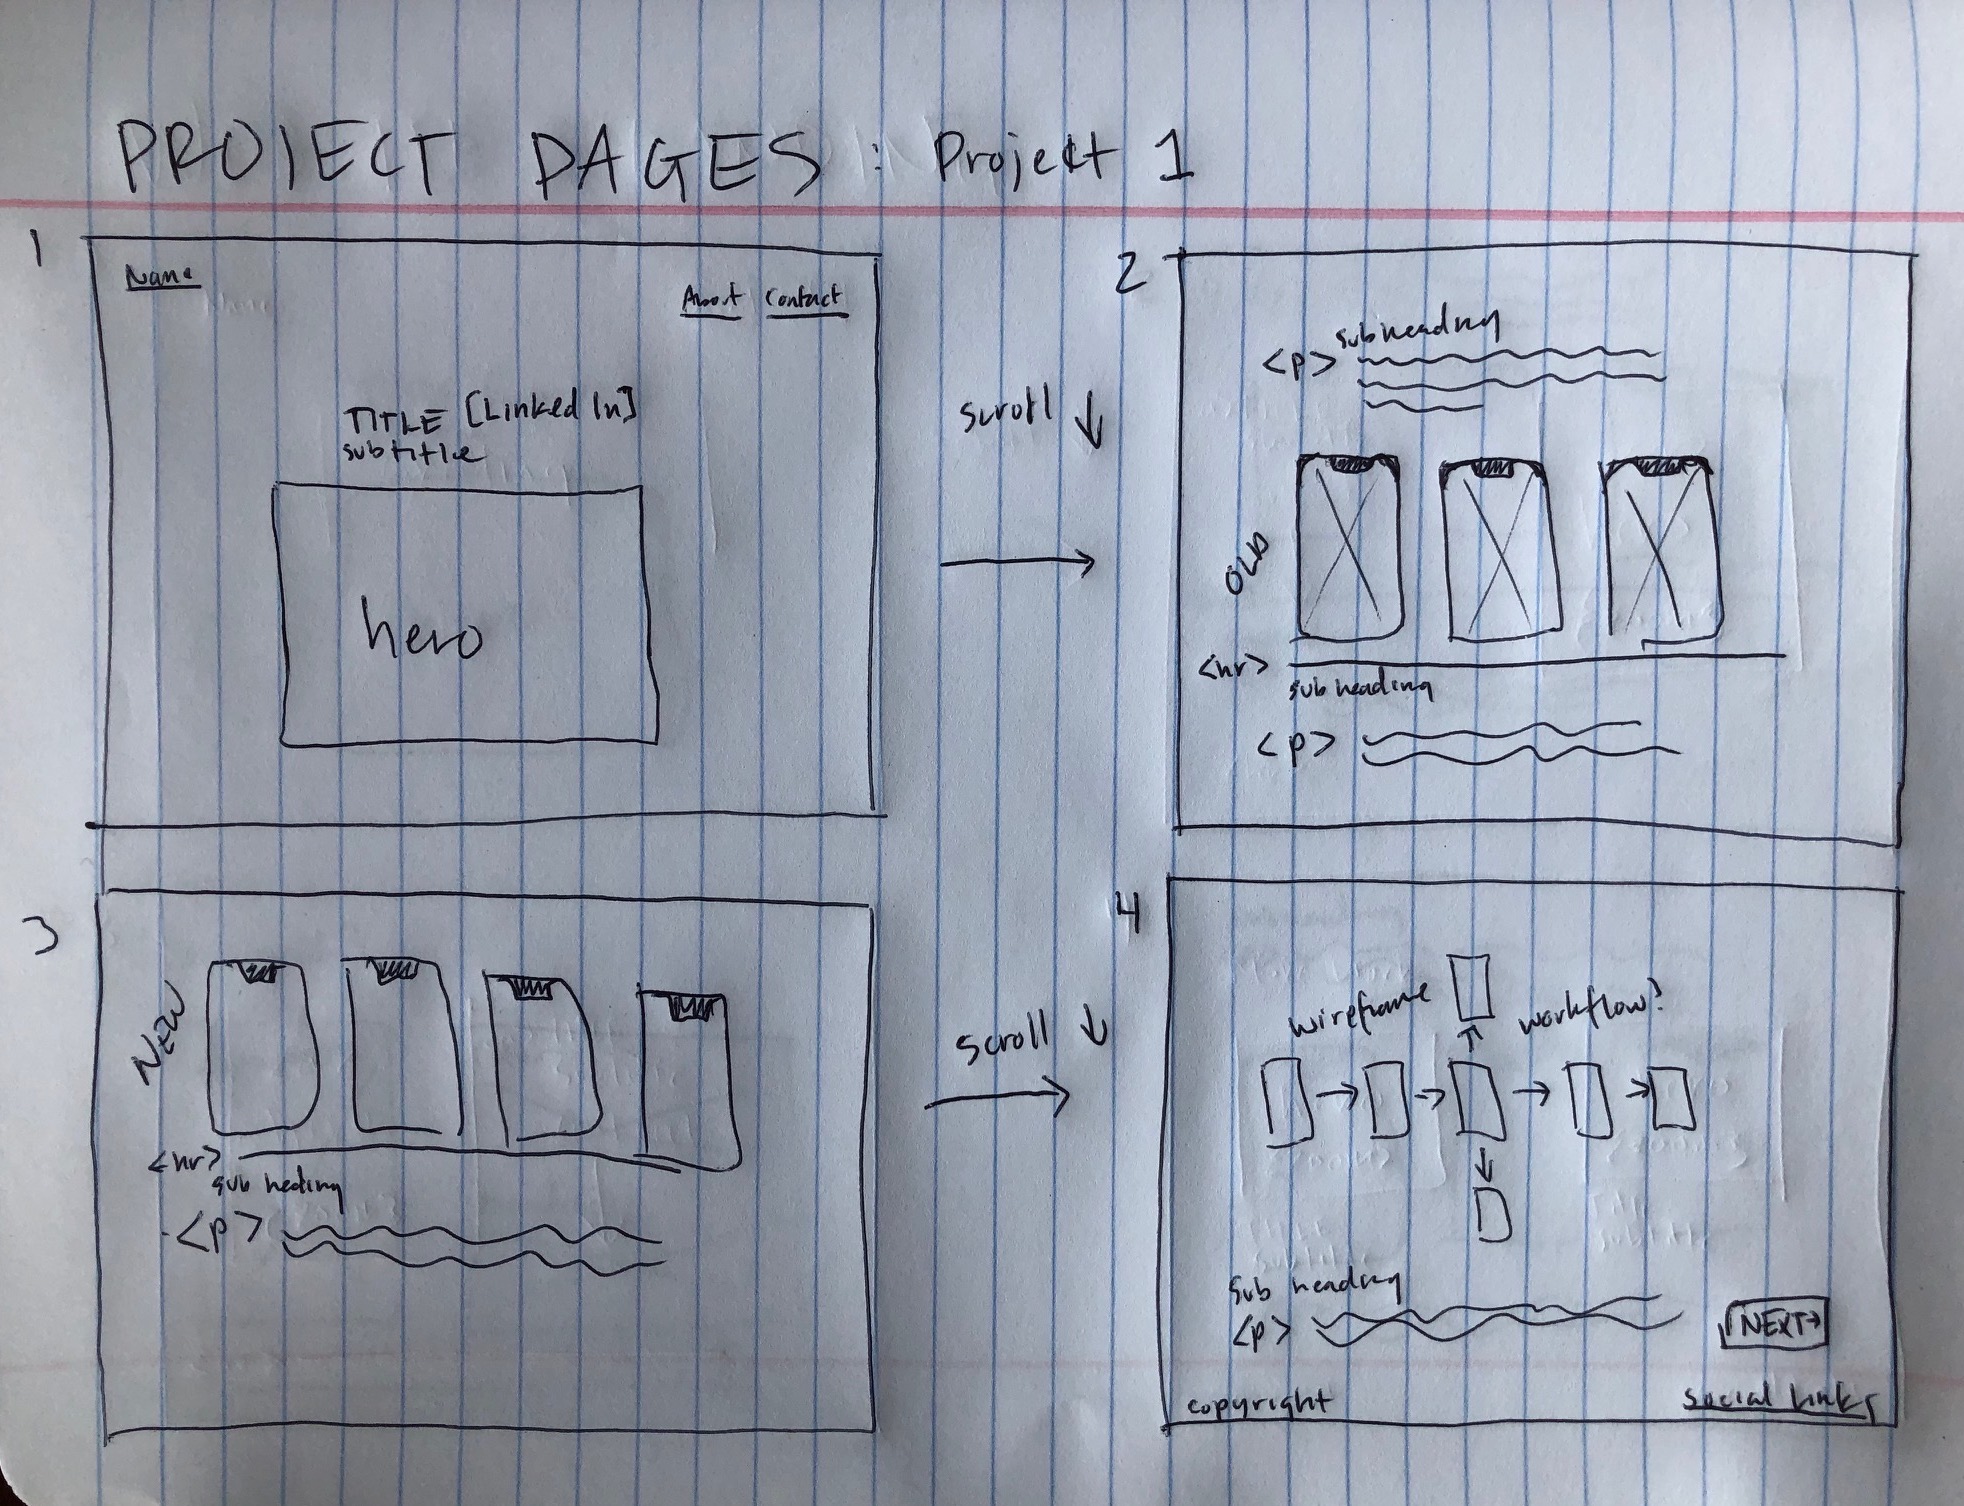 PROJECT PAGES: Project 1
1
Name
About Contact
TITLE [Linked In]
subtitle
hero
scroll ↓
2
subheading
<p>
OLD
<hr>
subheading
<p>
3
NEW
<hr>
sub heading
<p>
scroll ↓
4
wireframe workflow?
Sub heading
<p>
NEXT→
copyright social links